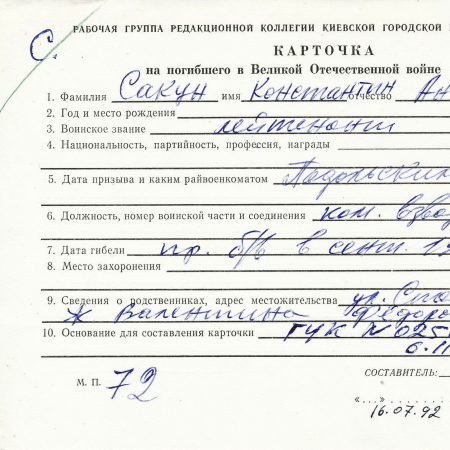 С.
РАБОЧАЯ ГРУППА РЕДАКЦИОННОЙ КОЛЛЕГИИ КИЕВСКОЙ ГОРОДСКОЙ
КАРТОЧКА
на погибшего в Великой Отечественной войне
1. Фамилия Сакун имя Константин отчество Ан
2. Год и место рождения
3. Воинское звание лейтенант
4. Национальность, партийность, профессия, награды
5. Дата призыва и каким райвоенкоматом Подольским
6. Должность, номер воинской части и соединения ком. взвод
7. Дата гибели пр. б/в в сент. 19
8. Место захоронения
9. Сведения о родственниках, адрес местожительства ул.
ж Валентина Федоро
10. Основание для составления карточки ГУК № 025
6.11
СОСТАВИТЕЛЬ:
М. П. 72
«...»
16.07.92